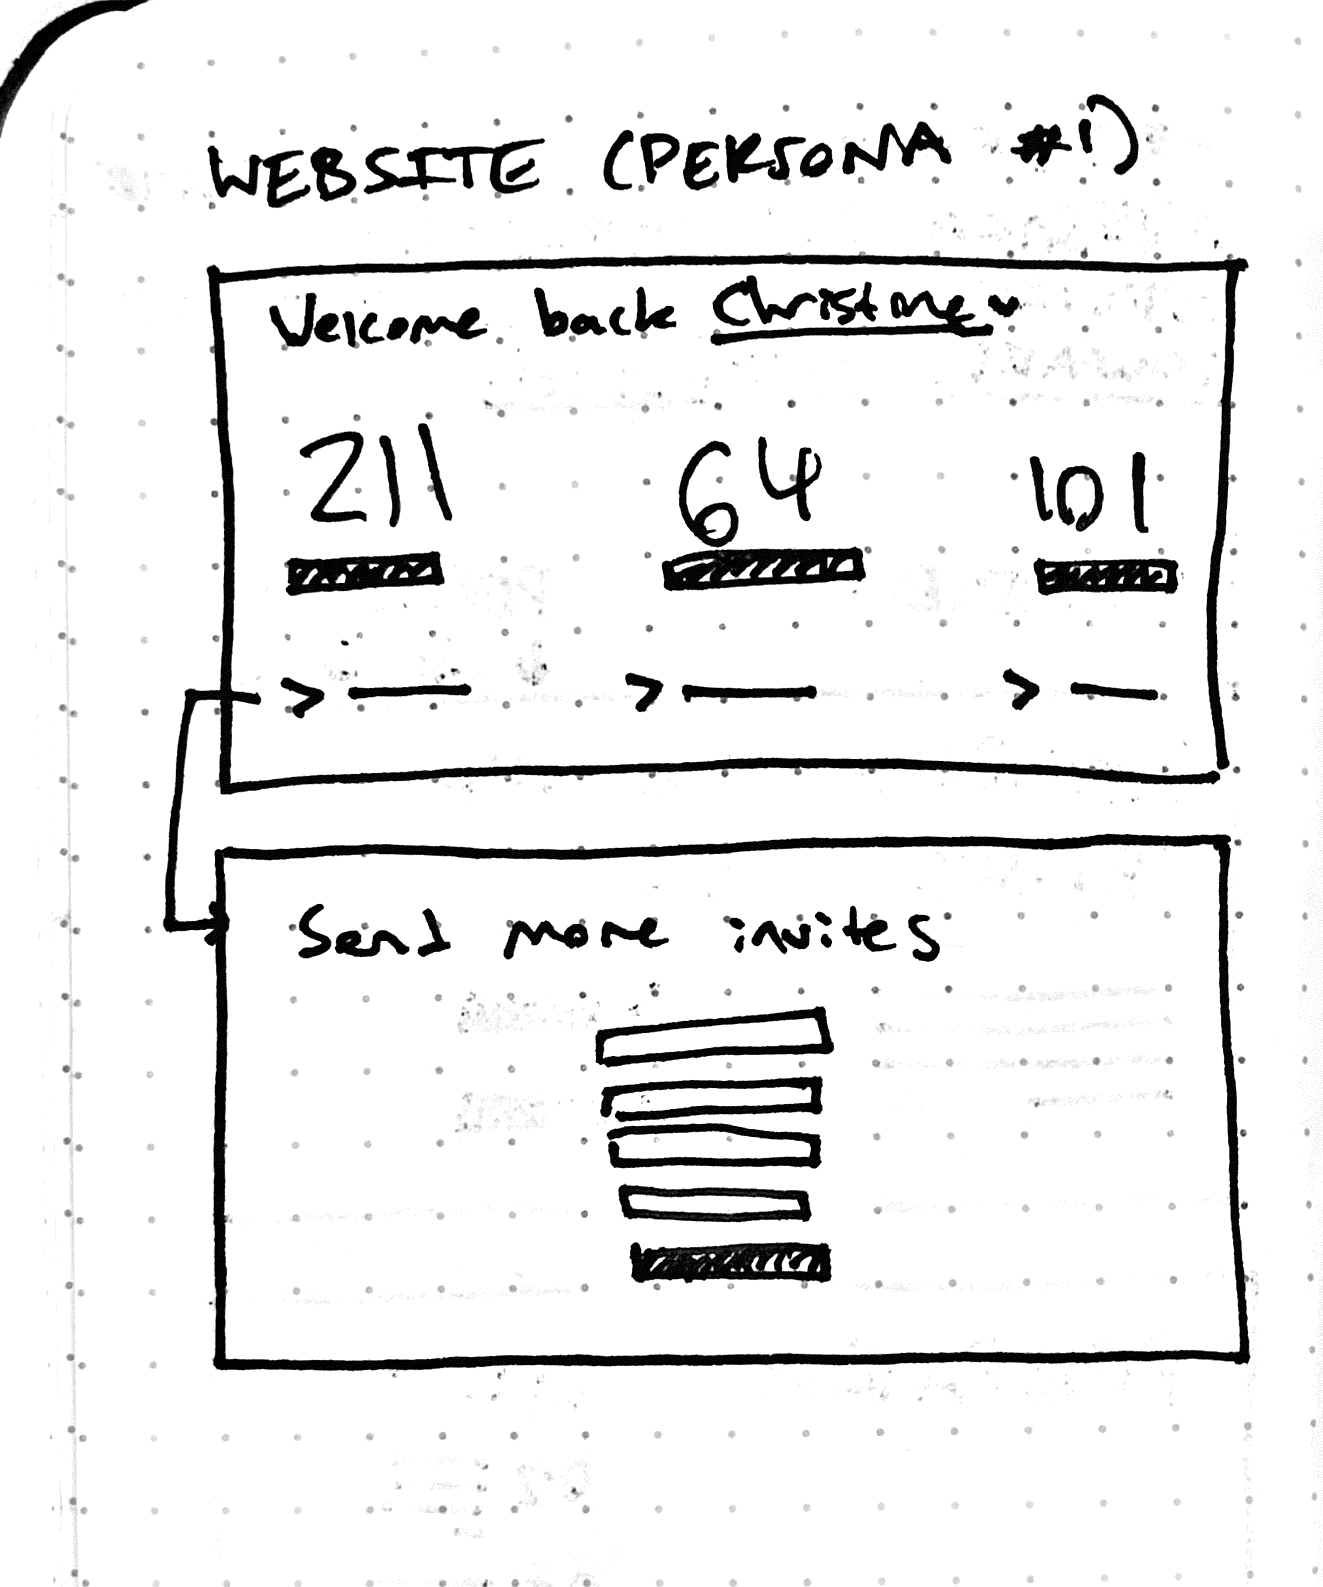 WEBSITE (PERSONA #1)
Welcome back Christine
211 64 101
> > >
Send more invites